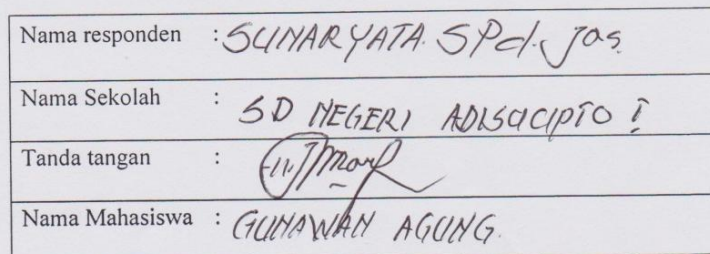 Nama responden : SUNARYATA. SPd. Jas.
Nama Sekolah : SD NEGERI ADISUCIPTO I
Tanda tangan :
Nama Mahasiswa : GUNAWAN AGUNG.